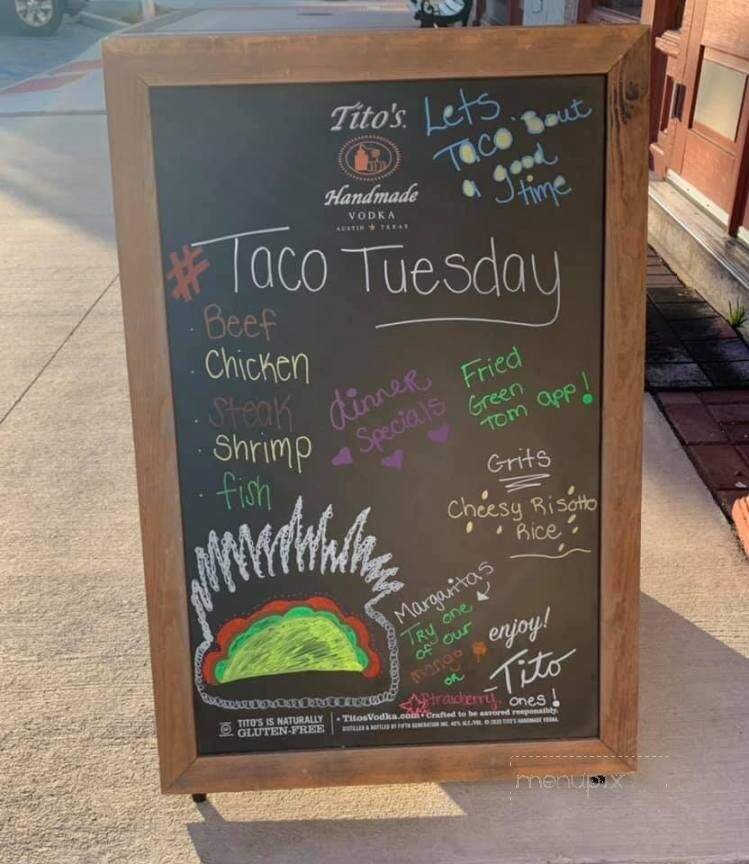 Tito's
Handmade
VODKA
AUSTIN ★ TEXAS
Lets
Taco 'Bout
a good
time
# Taco Tuesday
· Beef
· Chicken
· Steak
· Shrimp
· fish
dinner
Specials
Fried
Green
Tom app!
Grits
Cheesy Risotto
Rice
Margaritas
Try one
of our
mango
or
Strawberry
ones!
enjoy!
-Tito
TITO'S IS NATURALLY
GLUTEN-FREE
• TitosVodka.com • Crafted to be savored responsibly.
DISTILLED & BOTTLED BY FIFTH GENERATION INC. 40% ALC./VOL. © 2020 TITO'S HANDMADE VODKA.
menupix